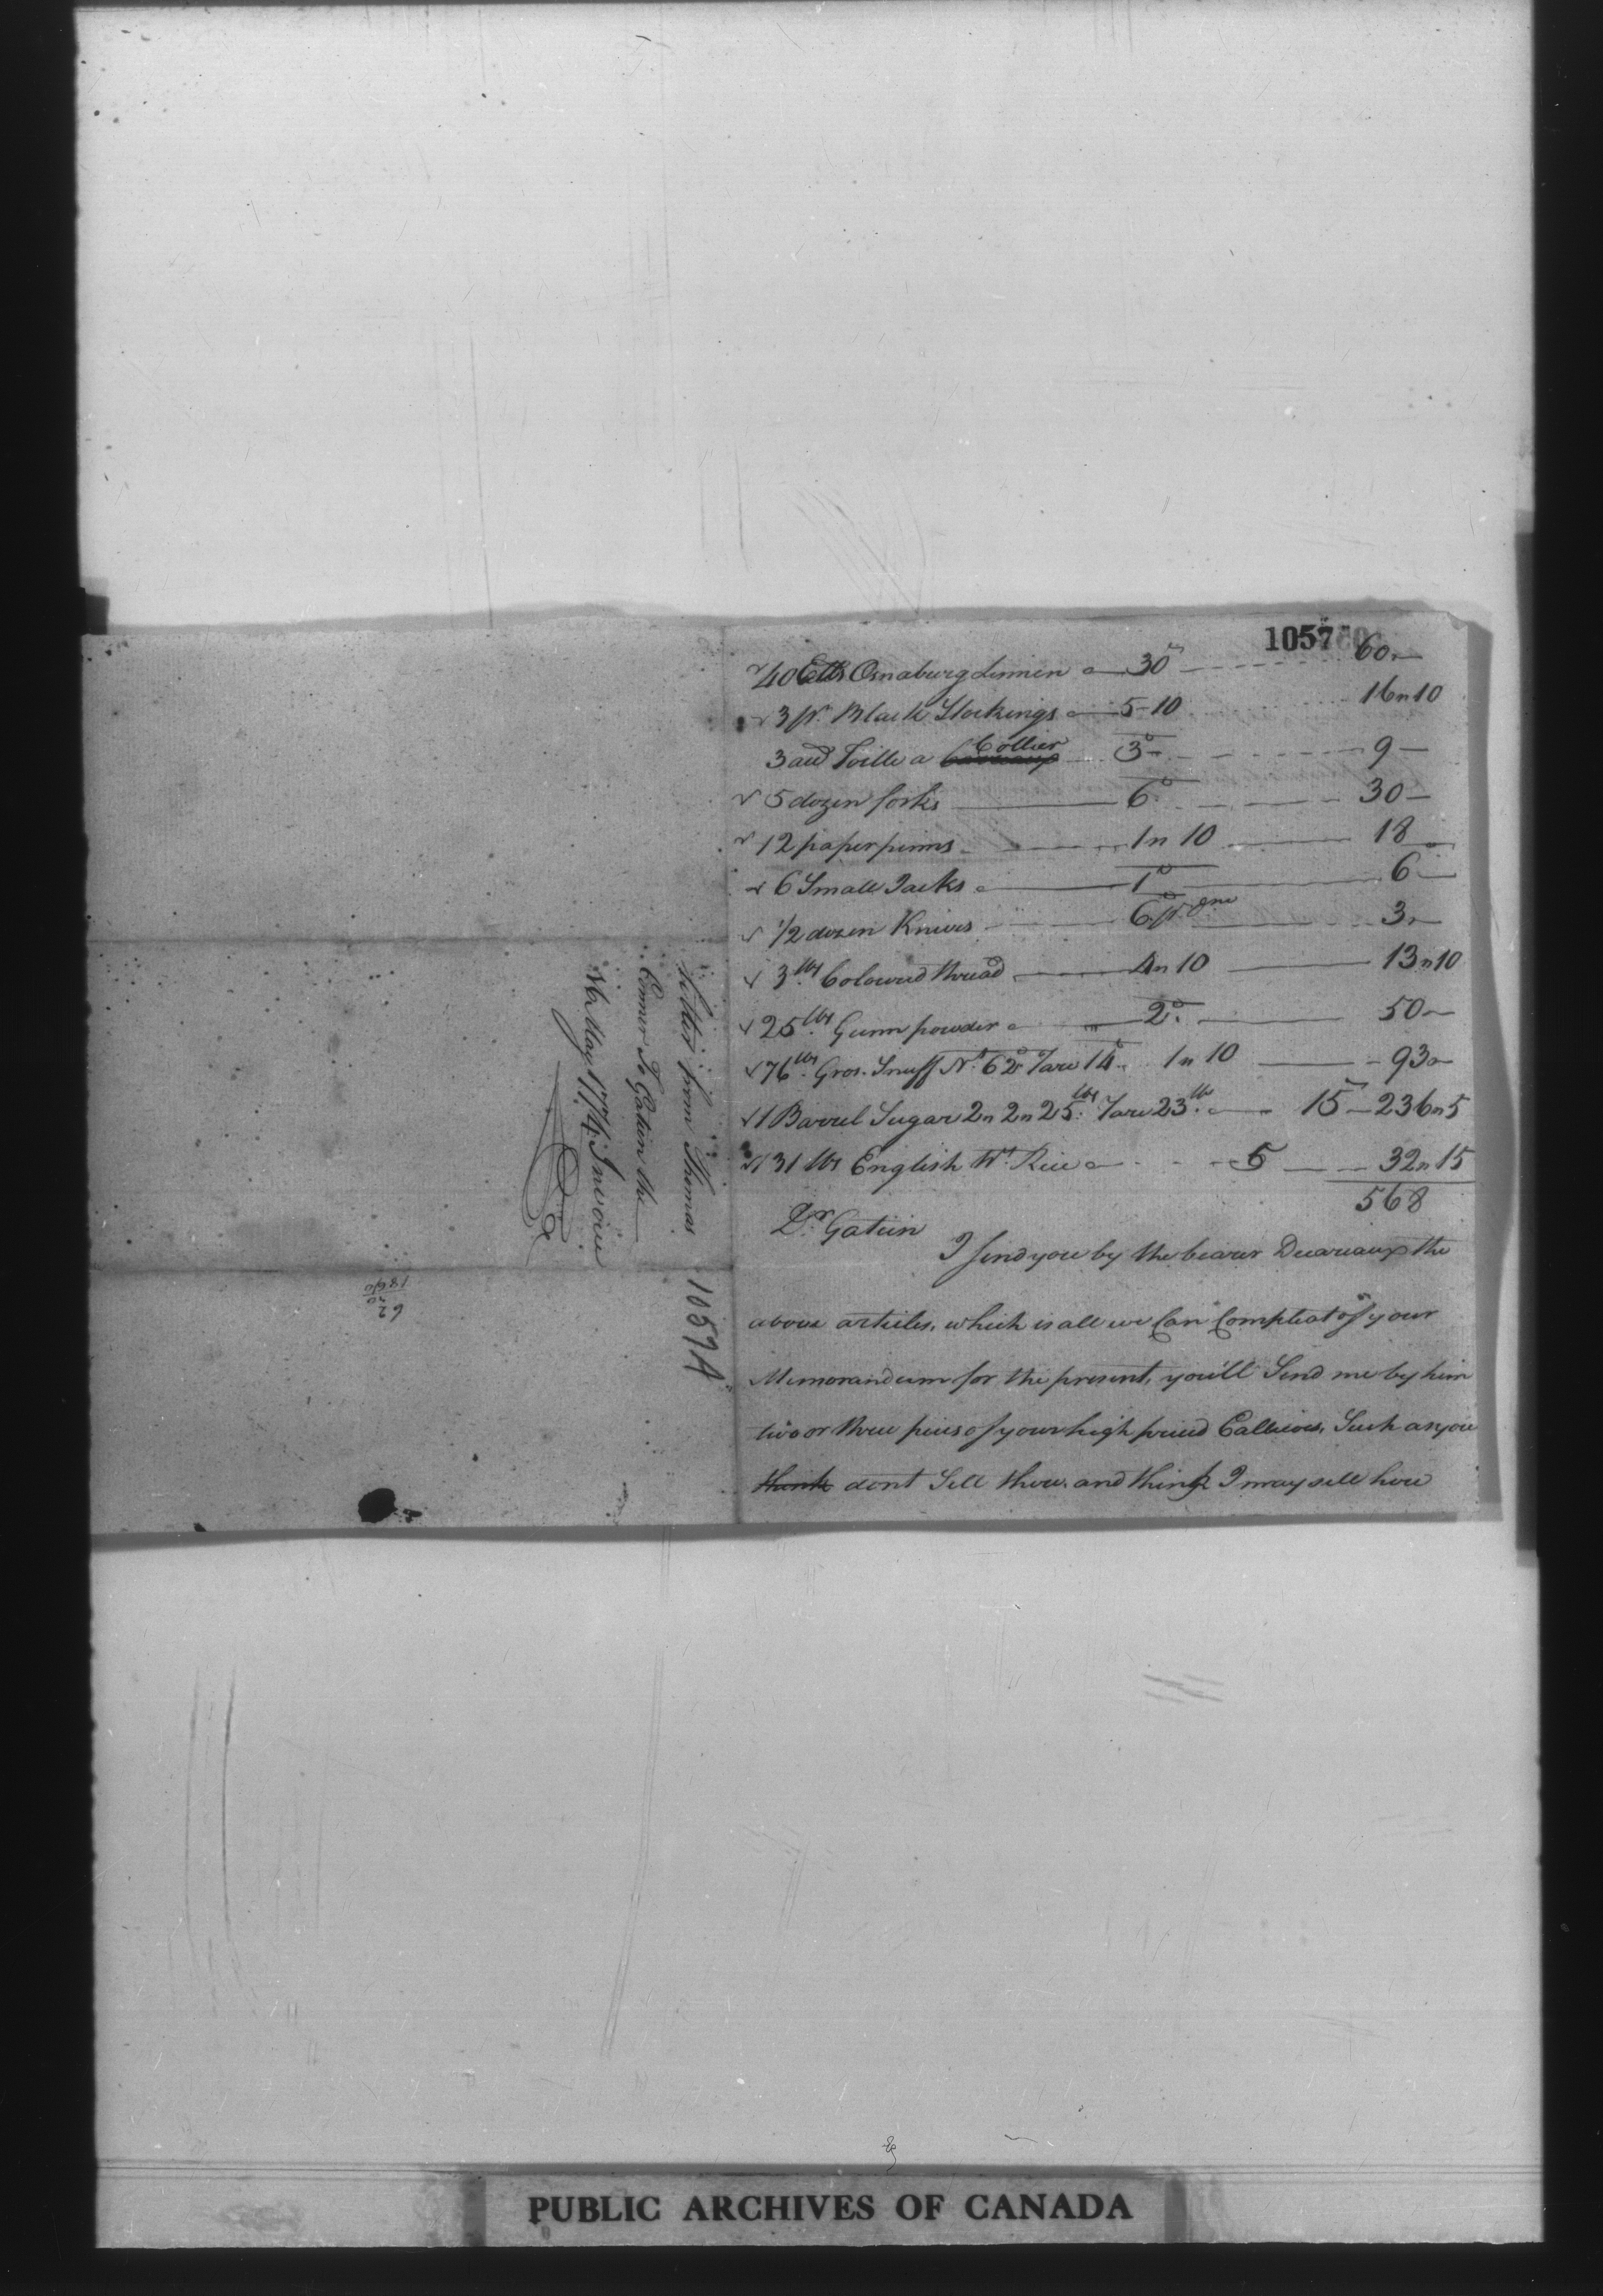 1057
40 Ells Osnaburg Linnen a 30 60
3 pr. Black Stockings a 5-10 16n10
3 aud Toille a Collier 3 9
5 dozen forks 6 30
12 paper pinns 1n10 18
6 Small Jacks a 1 6
1/2 dozen Knives 6 pr. 3
3 lbs Coloured thread 4n10 13n10
25 lbs Gunn powder a 2 50
76 lbs Gros. Snuff Nt. 62 Tare 14 1n10 93
1 Barrel Sugar 2n 2n 25 lbs Tare 23 lb a 15 236n5
131 lbs English Wt. Rice a 5 32n15
568
Dr. Gatien
I send you by the bearer Ducareaux the
above articles, which is all we Can Compleat of your
Memorandum for the present, you'll Send me by him
two or three pieces of your high priced Callicoes, Such as you
think dont Sell there and think I may sell here
Letter from Thomas
Conner To Gatien the
16 May 1774 Invoice
1057A
62
30
1860
PUBLIC ARCHIVES OF CANADA